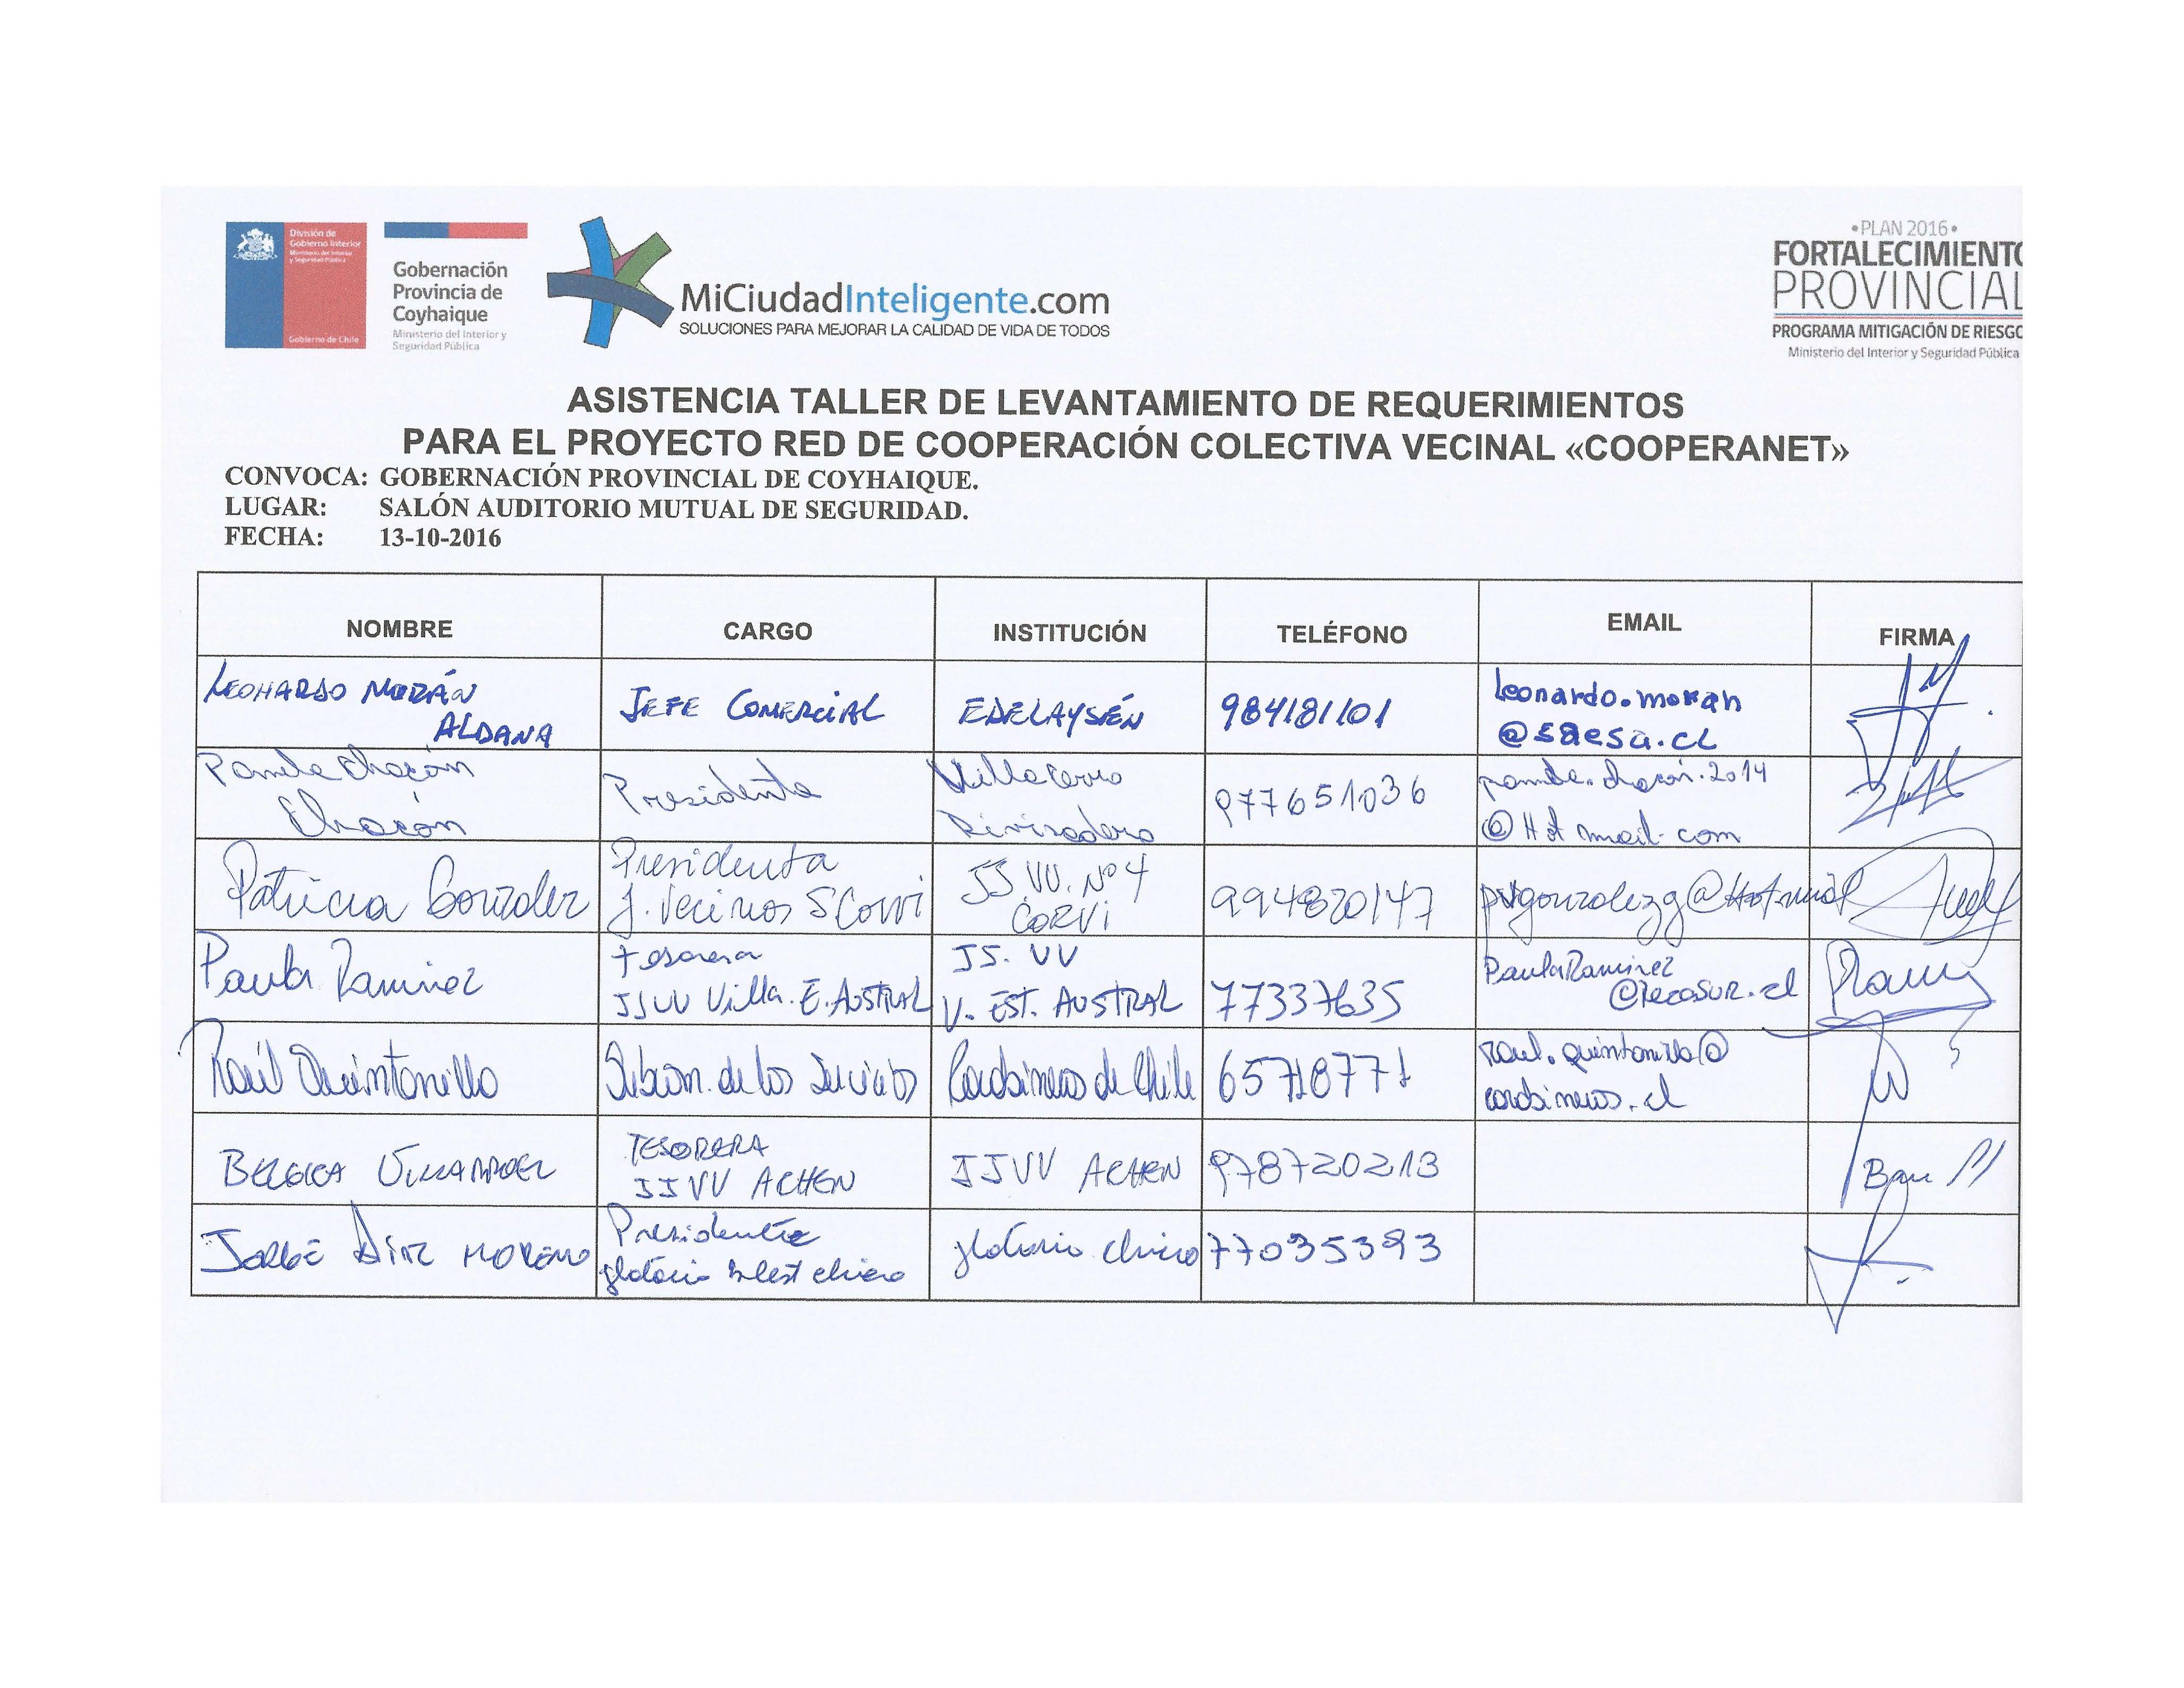 División de
Gobierno Interior
Ministerio del Interior
y Seguridad Pública
Gobierno de Chile
Gobernación
Provincia de
Coyhaique
Ministerio del Interior y
Seguridad Pública
MiCiudadInteligente.com
SOLUCIONES PARA MEJORAR LA CALIDAD DE VIDA DE TODOS
•PLAN 2016•
FORTALECIMIENTO
PROVINCIAL
PROGRAMA MITIGACIÓN DE RIESGO
Ministerio del Interior y Seguridad Pública
ASISTENCIA TALLER DE LEVANTAMIENTO DE REQUERIMIENTOS
PARA EL PROYECTO RED DE COOPERACIÓN COLECTIVA VECINAL «COOPERANET»
CONVOCA: GOBERNACIÓN PROVINCIAL DE COYHAIQUE.
LUGAR: SALÓN AUDITORIO MUTUAL DE SEGURIDAD.
FECHA: 13-10-2016
NOMBRE CARGO INSTITUCIÓN TELÉFONO EMAIL FIRMA
LEONARDO MORÁN
ALDANA
JEFE COMERCIAL
EDELAYSÉN
984181101
leonardo.moran
@saesa.cl
Pamela Chacón
Chacón
Presidenta
Villa Cerro
Divisadero
977651036
pamela.chacon.2014
@Hotmail.com
Patricia González
Presidenta
J. Vecinos
JJ.VV. Nº4
CORVI
994820147
pvgonzalezg@Hotmail
Paula Ramirez
Tesorera
JJVV Villa. E. AUSTRAL
JJ. VV
V. EST. AUSTRAL
77337635
PaulaRamirez
@tecaSUR.cl
Raúl Quintanilla
Subcom. de los Servicios
Carabineros de Chile
65718771
raul.quintanilla@
carabineros.cl
BELGICA VILLARROEL
TESORERA
JJVV ACHEN
JJVV ACHEN
978720213
JORGE DIAZ MORENO
Presidente
chico
chico
77035393